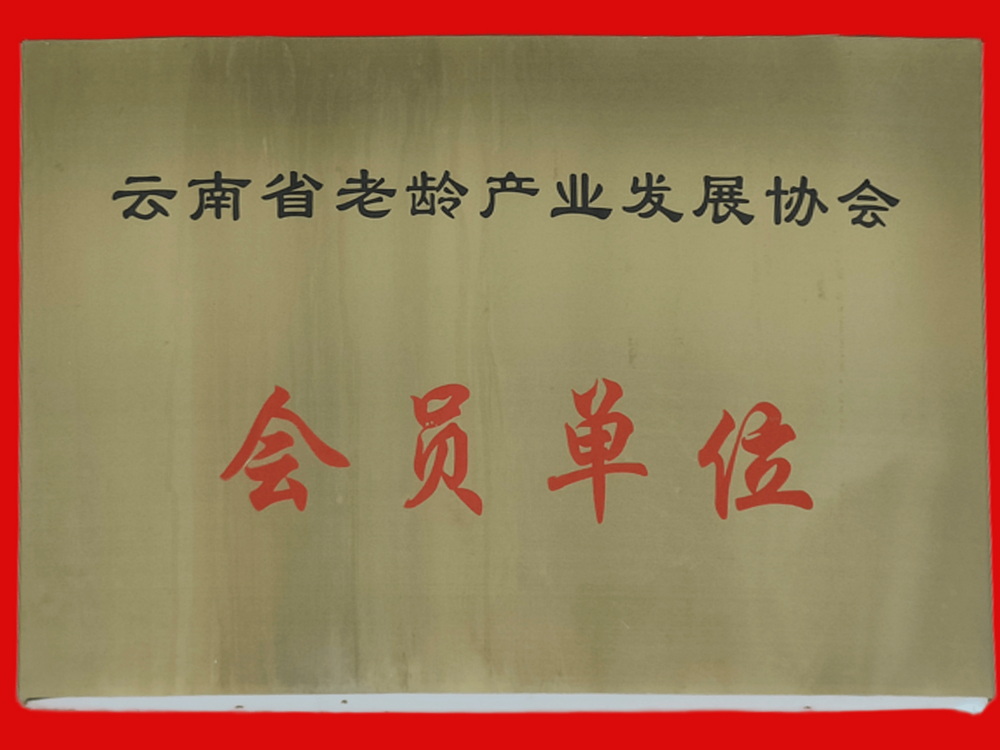 云南省老龄产业发展协会
会员单位